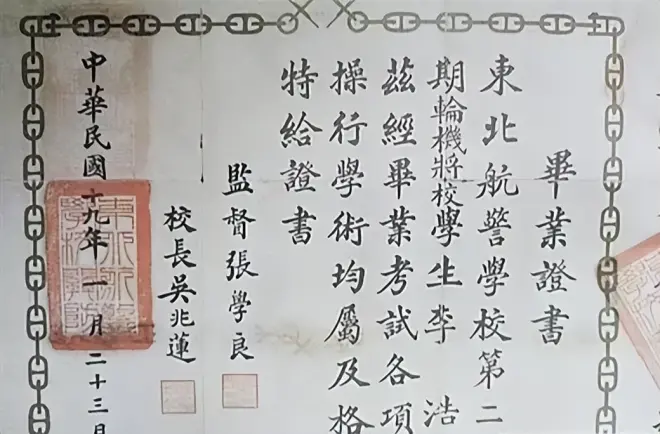 畢業證書
東北航警學校第二
期輪機將校學生李浩
茲經畢業考試各項
操行學術均屬及格
特給證書
監督張學良
校長吳兆蓮
中華民國十九年一月二十三日